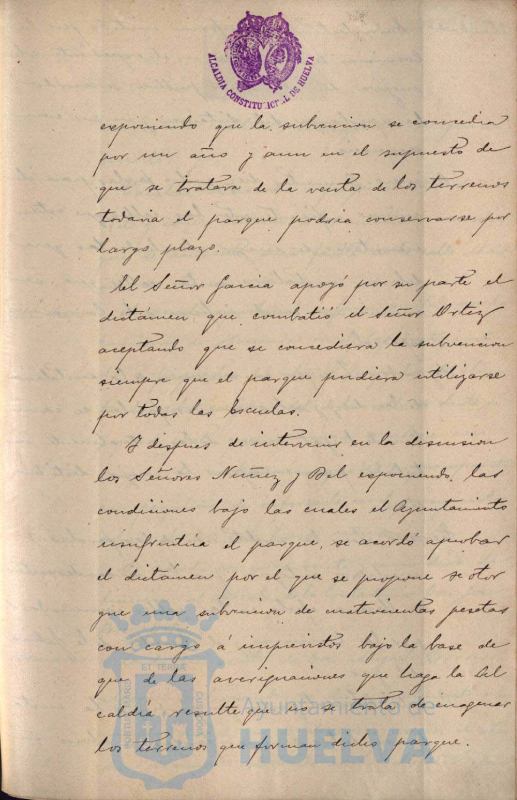 ALCALDIA CONSTITUCIONAL DE HUELVA
exponiendo que la subvencion se concedia
por un año y aun en el supuesto de
que se tratara de la venta de los terrenos
todavia el parque podria conservarse por
largo plazo.
El Señor Garcia apoyó por su parte el
dictámen que combatió el Señor Ortiz
aceptando que se concediera la subvencion
siempre que el parque pudiera utilizarse
por todas las Escuelas.
Y despues de intervenir en la discusion
los Señores Nuñez y Bel exponiendo las
condiciones bajo las cuales el Ayuntamiento
usufrutúa el parque, se acordó aprobar
el dictámen por el que se propone se otor
gue una subvencion de cuatrocientas pesetas
con cargo á imprevistos bajo la base de
que de las averiguaciones que haga la Al
caldía resulte que no se trata de enagenar
los terrenos que forman dicho parque.
Ayuntamiento de
HUELVA